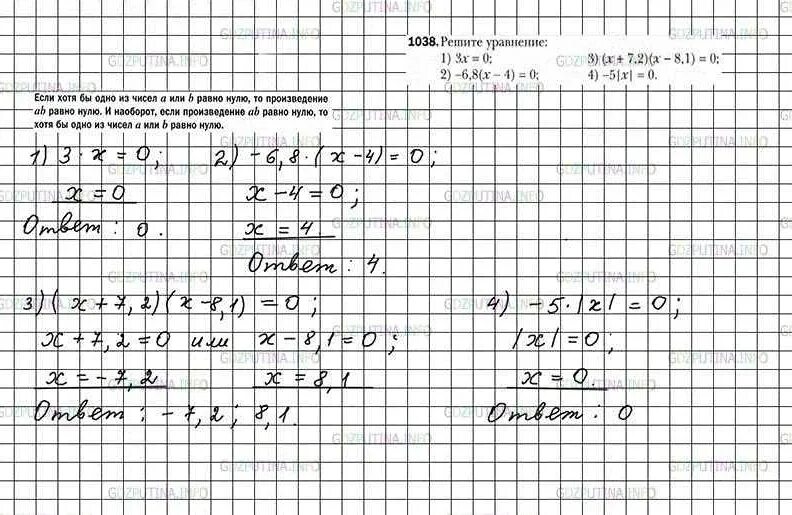 1038. Решите уравнение:
1) 3x = 0; 3) (x + 7,2)(x − 8,1) = 0;
2) −6,8(x − 4) = 0; 4) −5|x| = 0.
Если хотя бы одно из чисел a или b равно нулю, то произведение
ab равно нулю. И наоборот, если произведение ab равно нулю, то
хотя бы одно из чисел a или b равно нулю.
1) 3 · x = 0; 2) −6,8 · (x − 4) = 0;
x = 0 x − 4 = 0;
Ответ: 0. x = 4.
Ответ: 4.
3) (x + 7,2)(x − 8,1) = 0; 4) −5 · |x| = 0;
x + 7,2 = 0 или x − 8,1 = 0; |x| = 0;
x = −7,2 x = 8,1 x = 0.
Ответ: −7,2; 8,1 Ответ: 0
GDZPUTINA.INFO